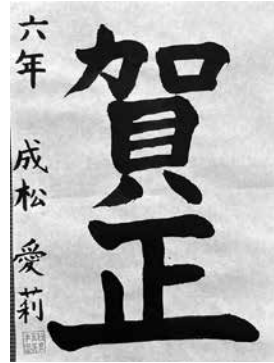 賀正
六年 成松 愛莉